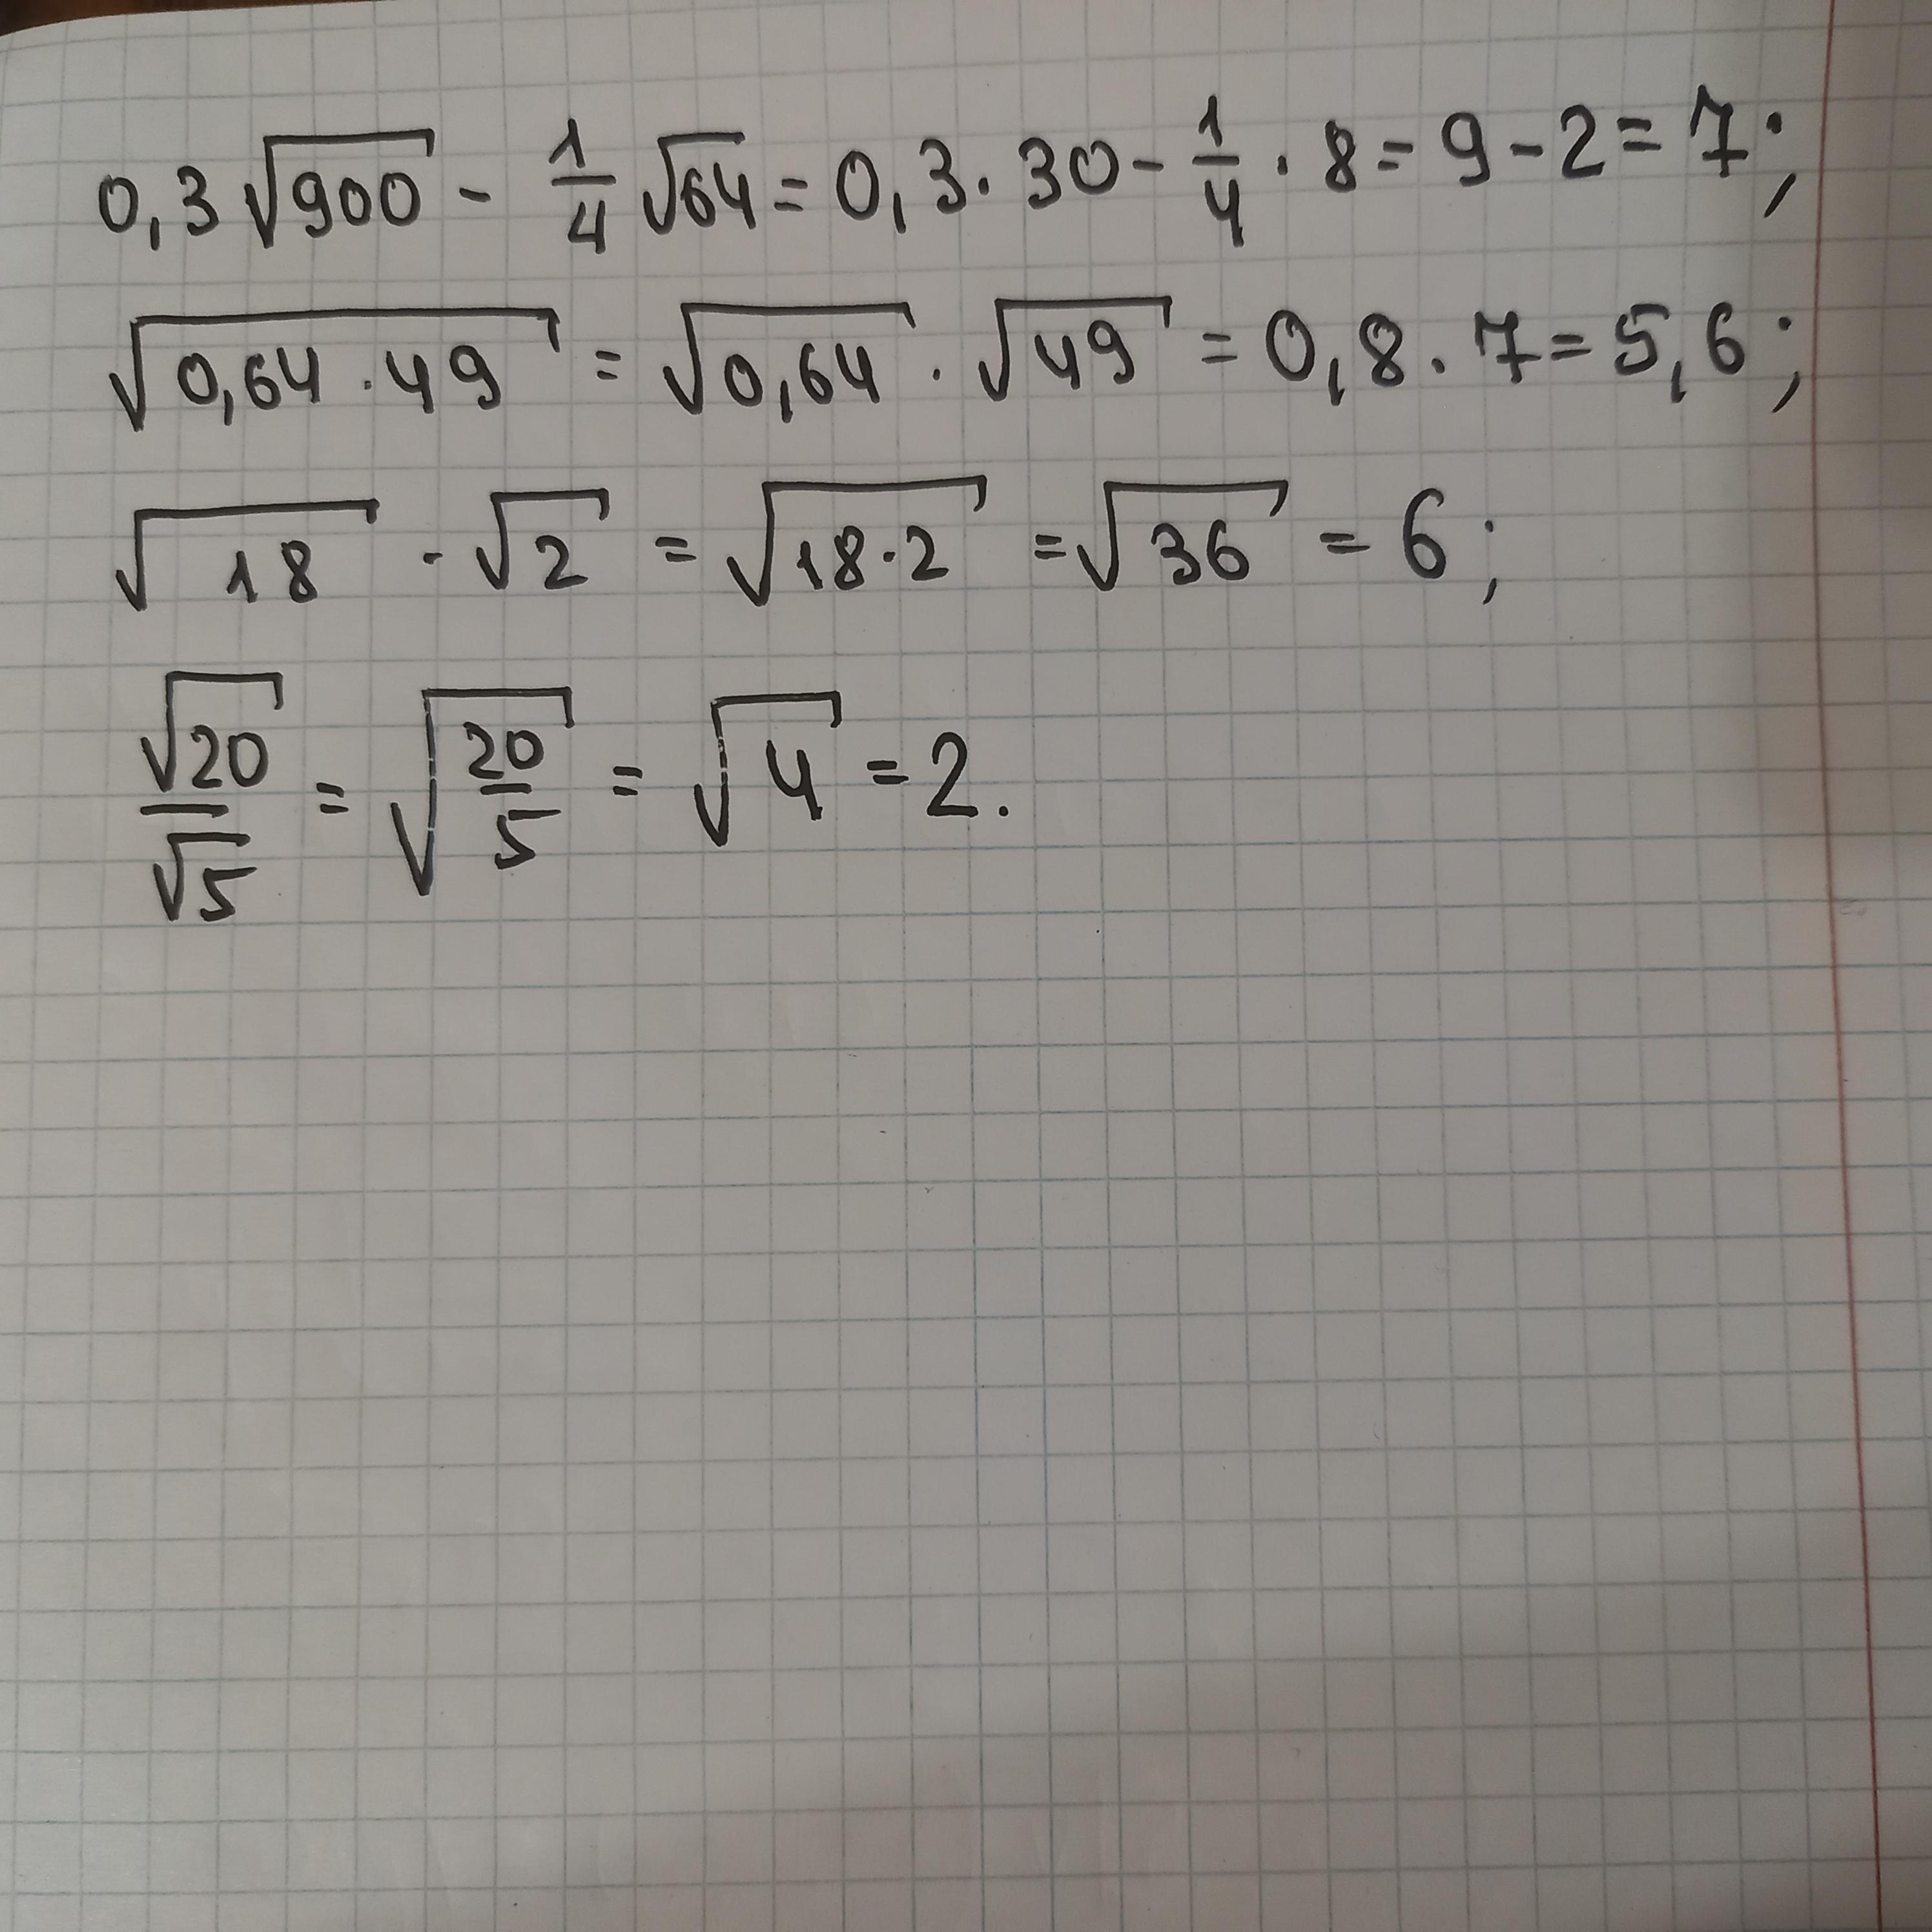 0,3√900 - 1/4 √64 = 0,3 · 30 - 1/4 · 8 = 9 - 2 = 7;
√0,64 · 49 = √0,64 · √49 = 0,8 · 7 = 5,6;
√18 · √2 = √18·2 = √36 = 6;
√20/√5 = √20/5 = √4 = 2.